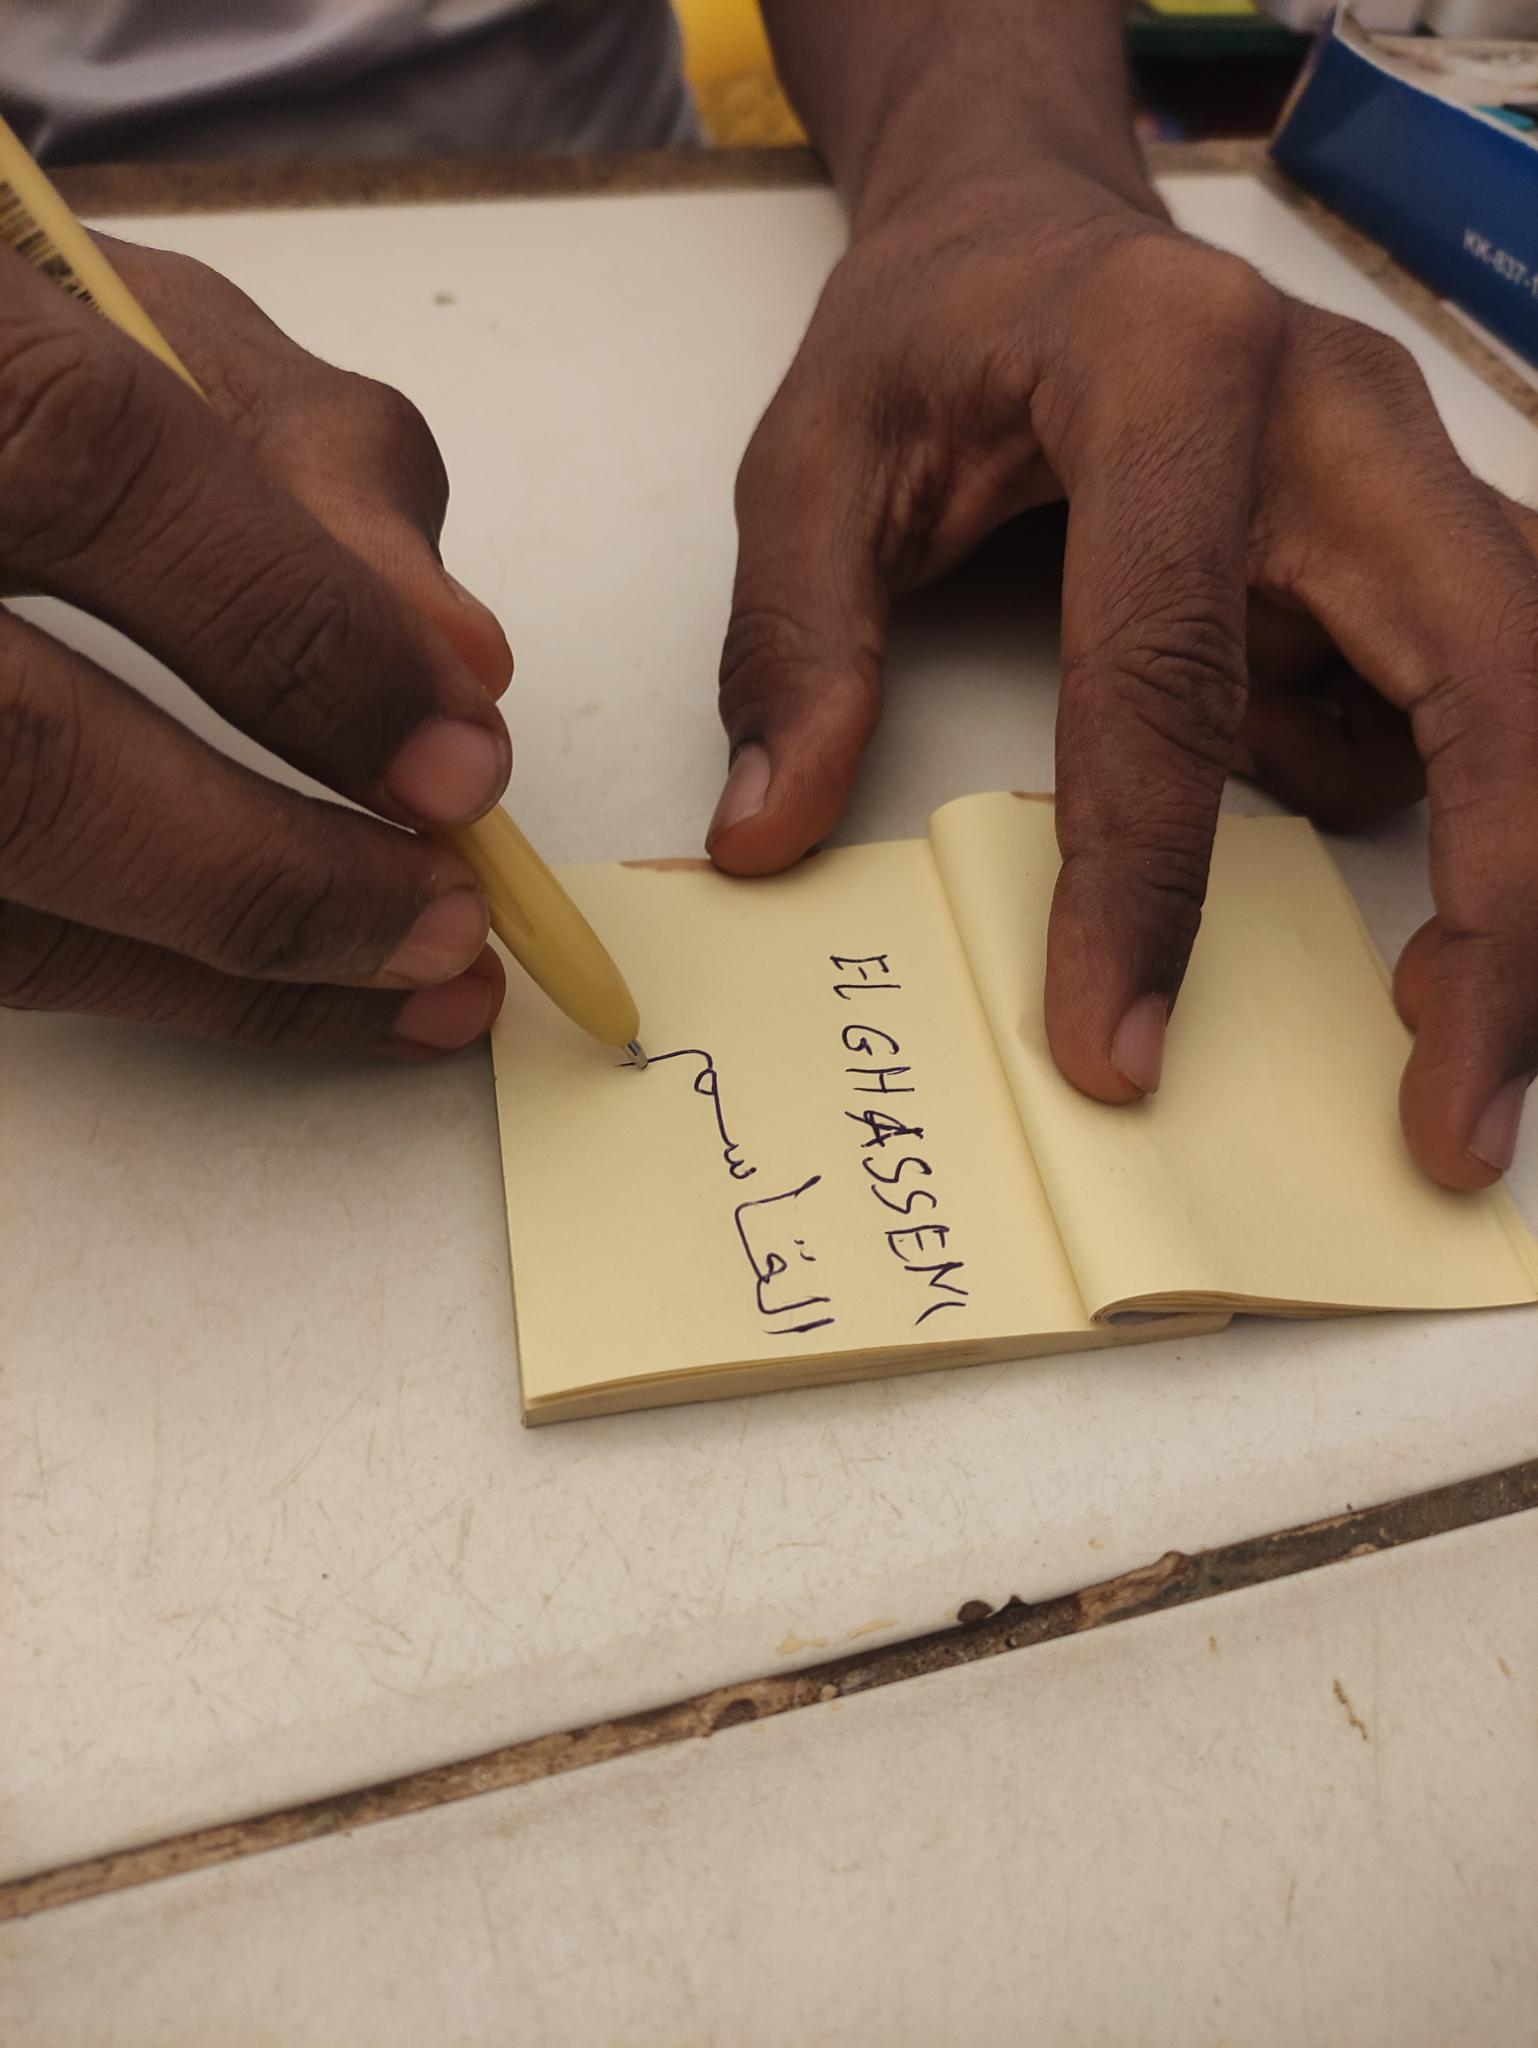 EL GHASSEM
القاسم
KK-837-1